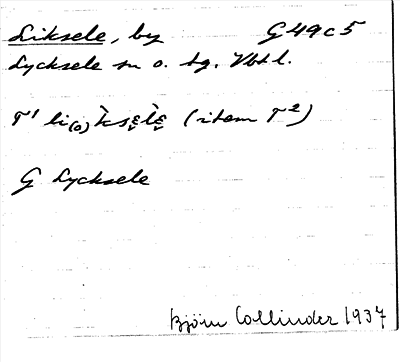 Liksele, by G 49c5
Lycksele sn o. tg. Vbtl.
T¹ li(o)k̀sęlę̀ (item T²)
G Lycksele
Björn Collinder 1937